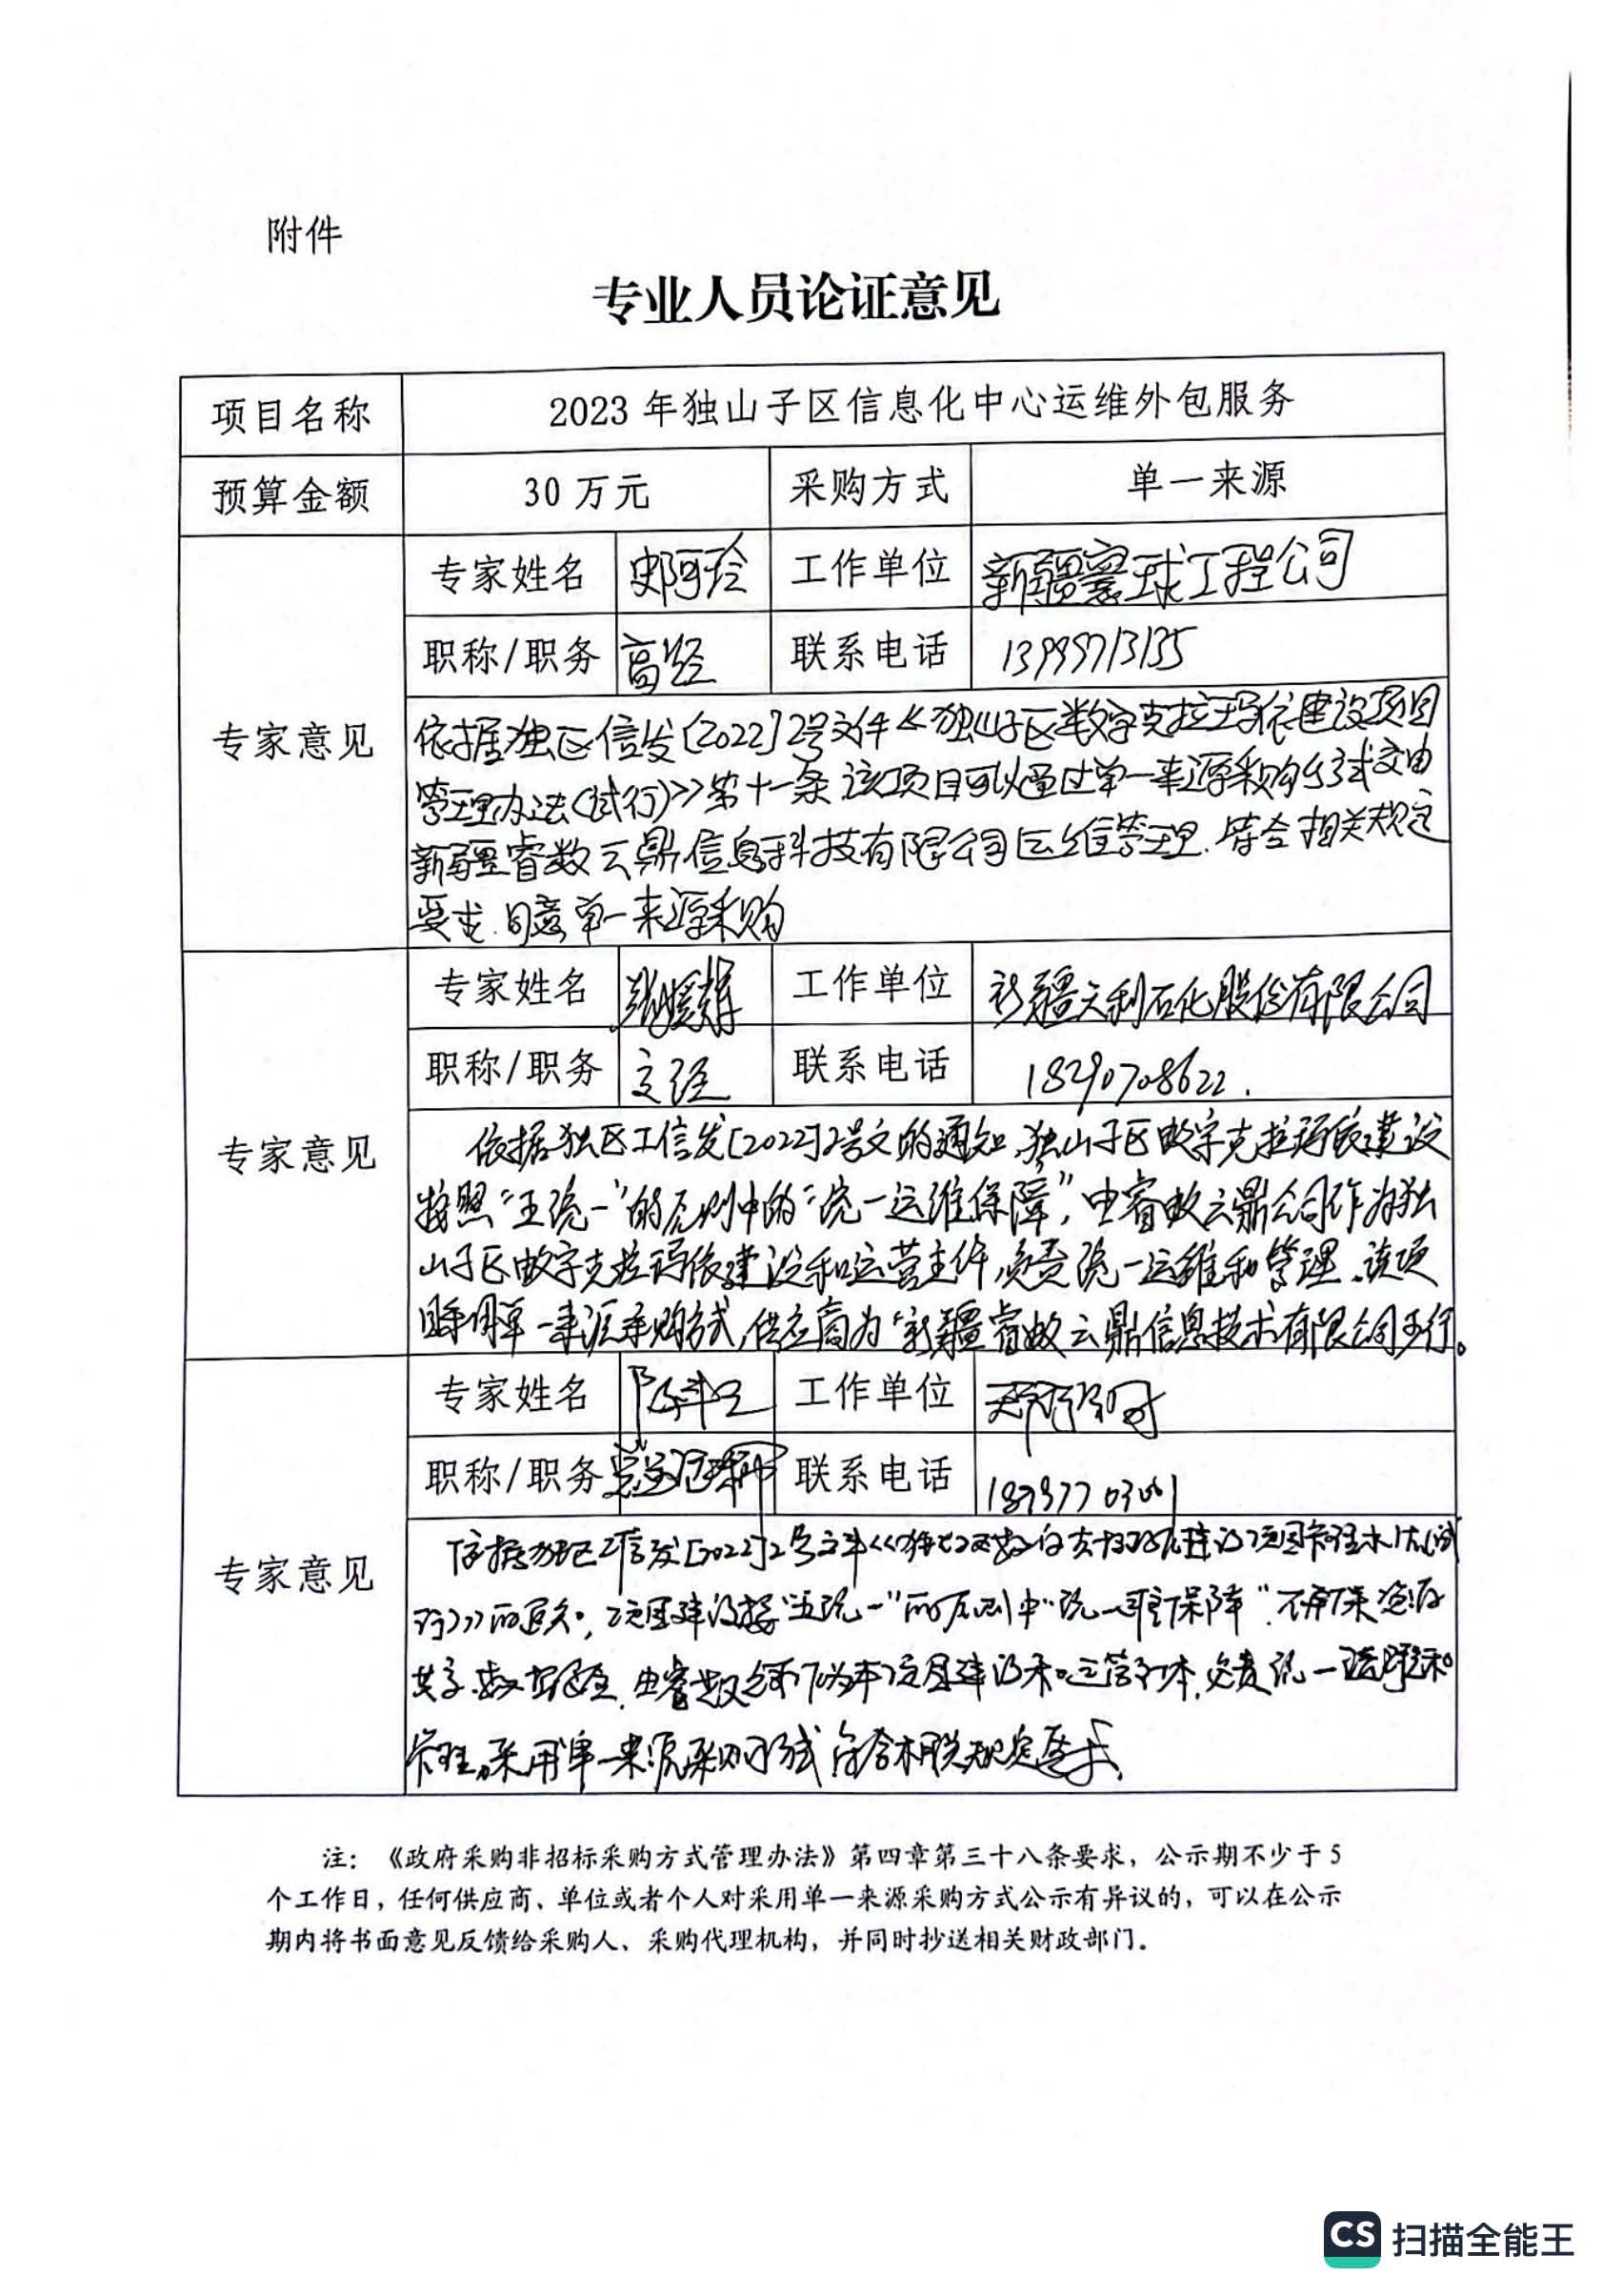 附件
专业人员论证意见
项目名称 2023年独山子区信息化中心运维外包服务
预算金额 30万元 采购方式 单一来源
专家姓名 工作单位 新疆寰球工程公司
职称/职务 高经 联系电话
专家意见
依据独区信发〔2022〕2号文件《独山子区数字克拉玛依建设项目
管理办法(试行)》第十一条 该项目可以通过单一来源采购方式交由
新疆睿数云鼎信息科技有限公司运维管理.符合相关规定
要求.同意单一来源采购
专家姓名 工作单位 新疆天利石化股份有限公司
职称/职务 联系电话 18290708622.
专家意见
依据独区工信发[2022]2号文的通知,独山子区数字克拉玛依建设
按照"五统一"的原则中的"统一运维保障",由睿数云鼎公司作为独
山子区数字克拉玛依建设和运营主体,负责统一运维和管理.该项
目采用单一来源采购方式,供应商为"新疆睿数云鼎信息技术有限公司"可行。
专家姓名 工作单位
职称/职务 联系电话
专家意见
依据独区工信发[2022]2号文件《独山子区数字克拉玛依建设项目管理办法(试
行)》的要求,项目建设按"五统一"的原则中"统一运维保障".
由睿数云鼎作为本项目建设和运营主体,负责统一运维和
管理,采用单一来源采购方式符合相关规定要求.
注：《政府采购非招标采购方式管理办法》第四章第三十八条要求，公示期不少于5
个工作日，任何供应商、单位或者个人对采用单一来源采购方式公示有异议的，可以在公示
期内将书面意见反馈给采购人、采购代理机构，并同时抄送相关财政部门。
CS 扫描全能王